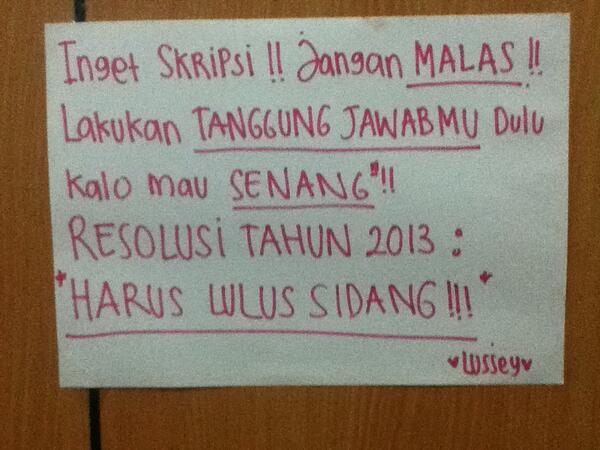 Inget SKRIPSI !! Jangan MALAS !!
Lakukan TANGGUNG JAWABMU Dulu
Kalo mau SENANG"!!
RESOLUSI TAHUN 2013 :
*HARUS LULUS SIDANG!!!*
♥Lussey♥